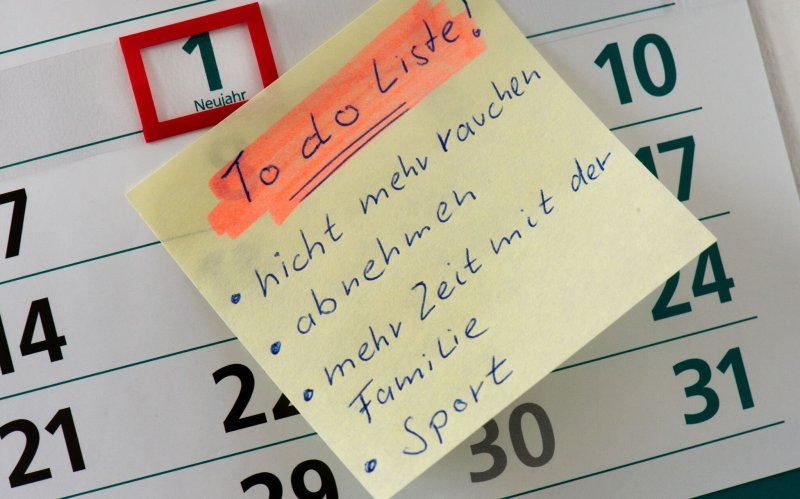 1
Neujahr
10
To do Liste!
• nicht mehr rauchen
• abnehmen
• mehr Zeit mit der
Familie
• Sport
7
17
14
24
21
22
31
29
30